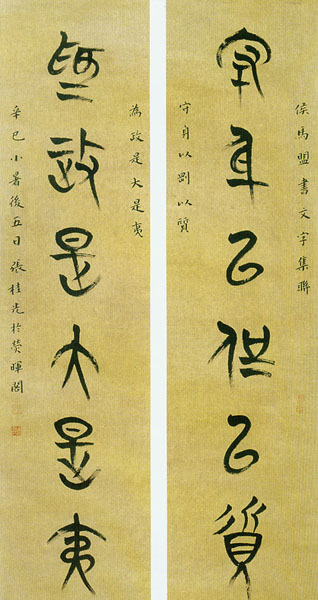 侯馬盟書文字集聯
守身以剛以質
守身以剛以質
為政是大是夷
為政是大是夷
辛巳小暑後五日張桂光於暉閣